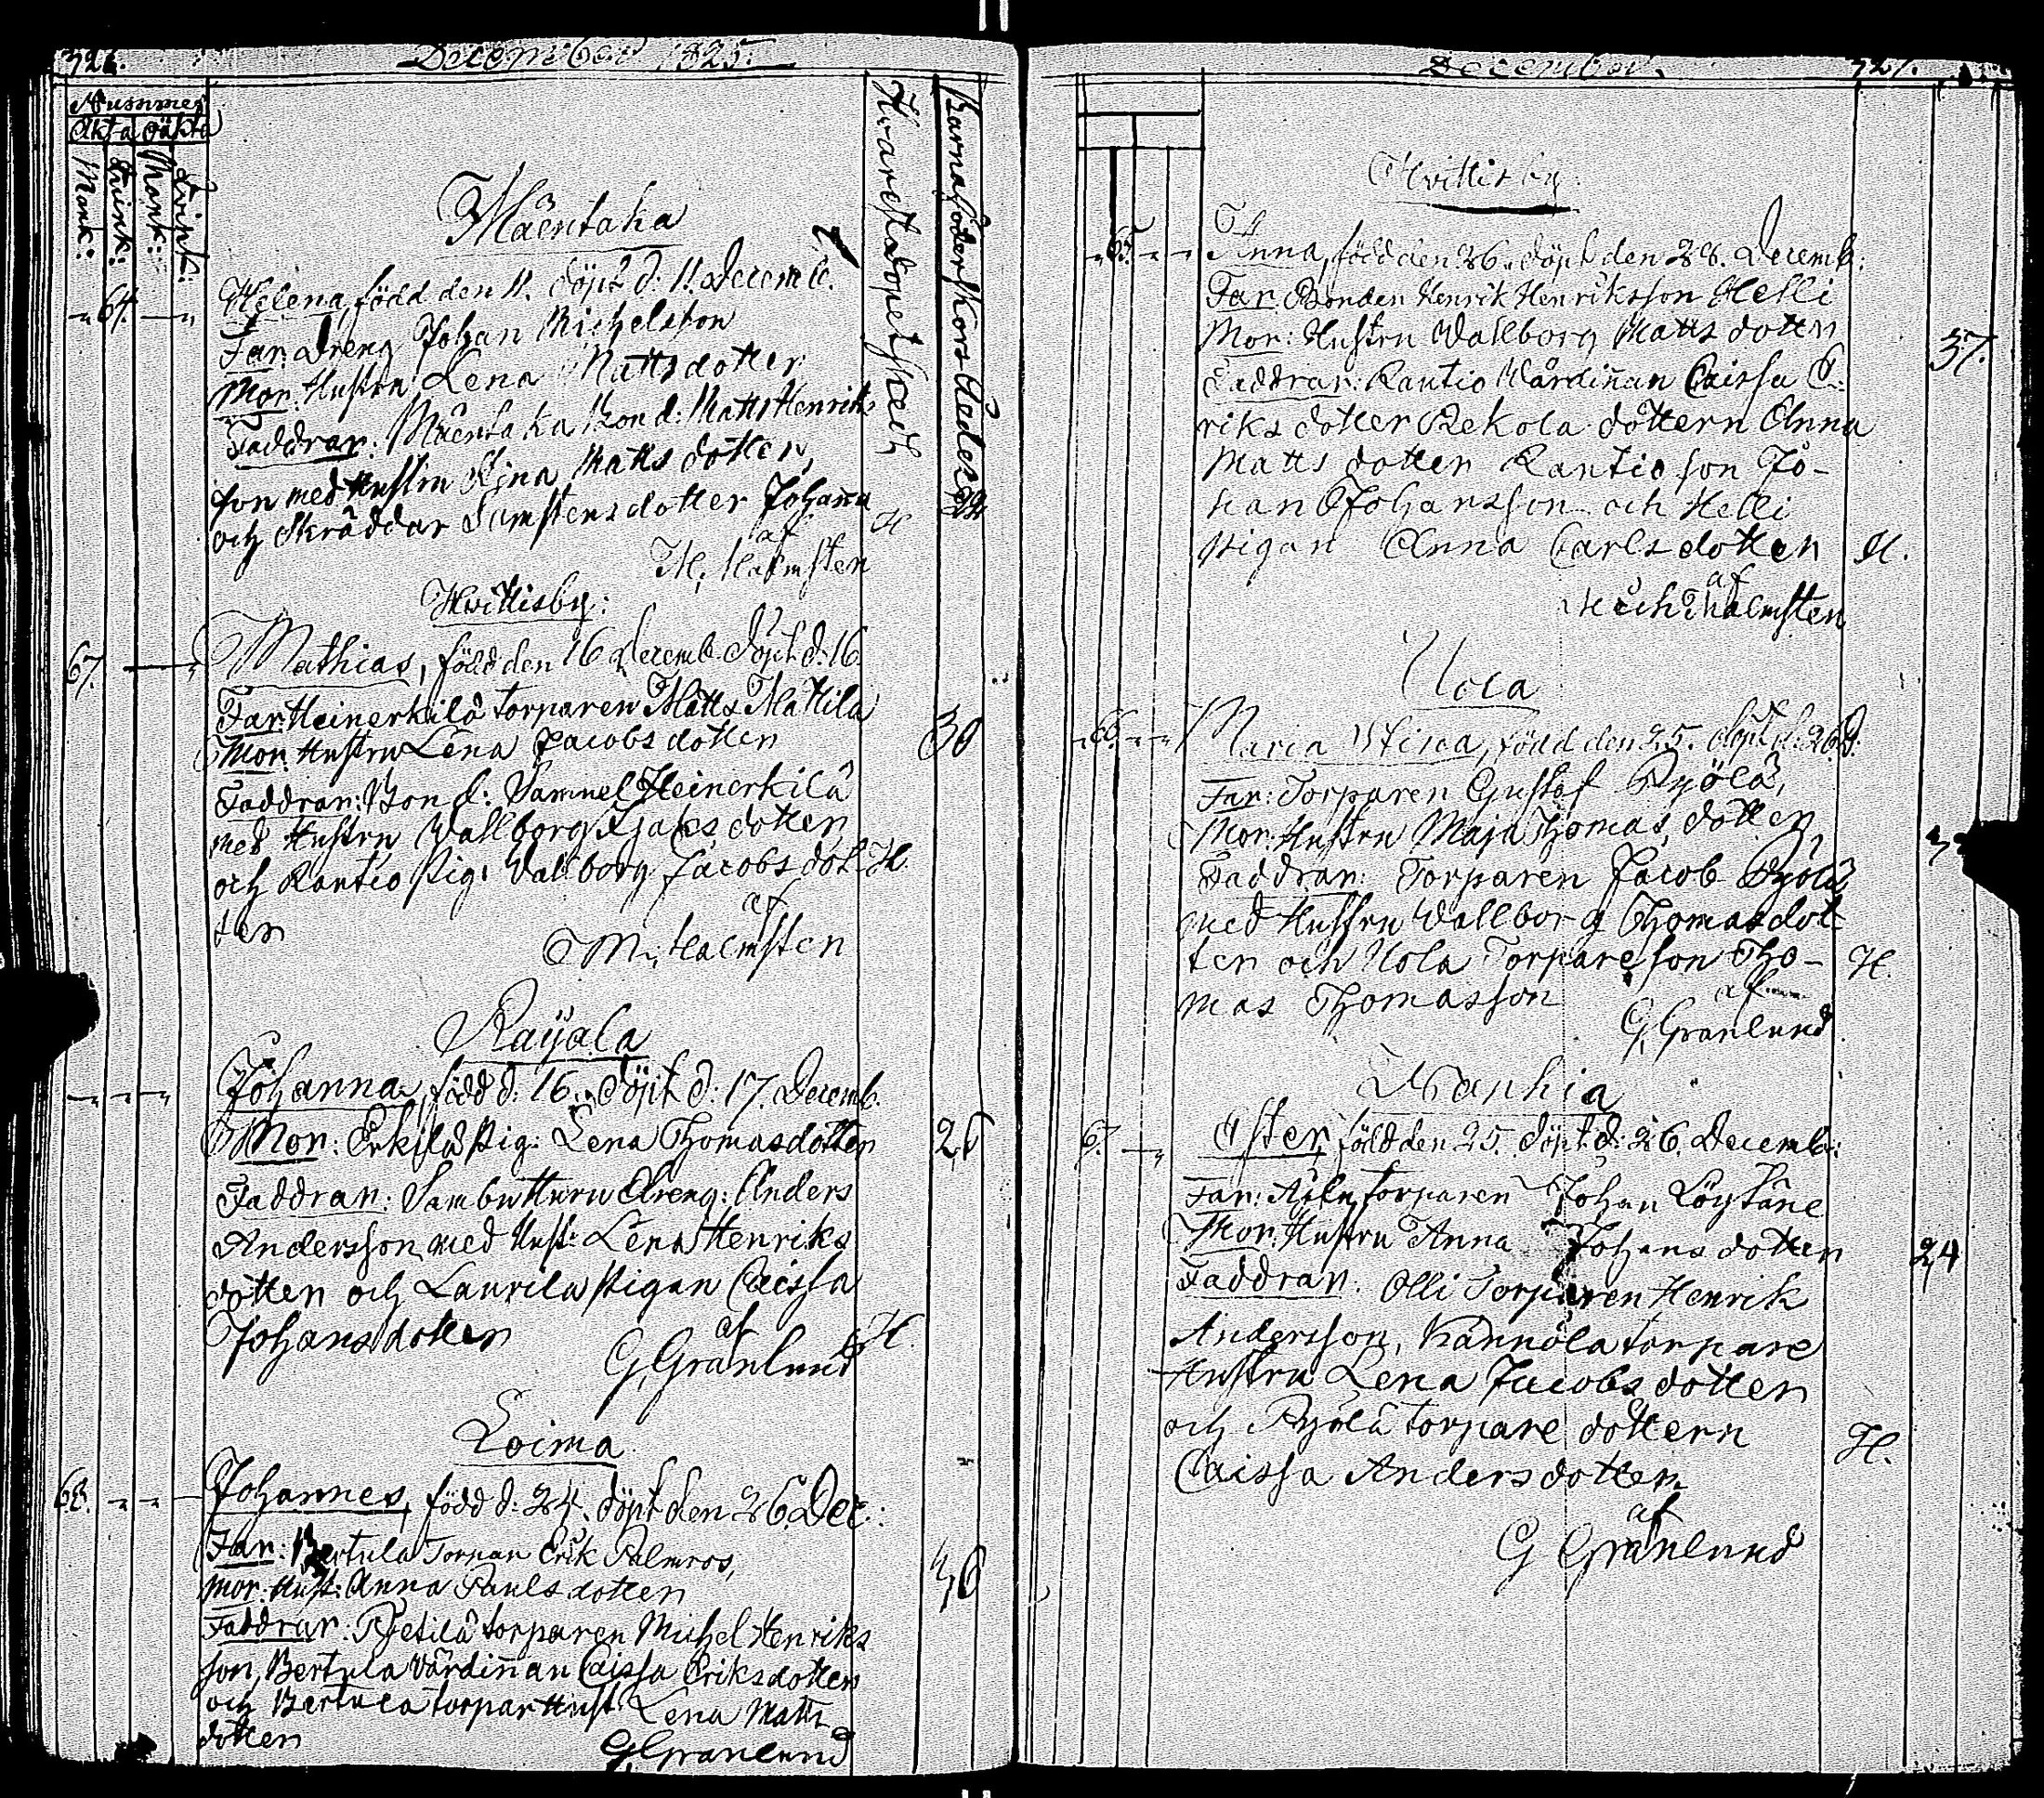 December 1825.
Nummer
Äkta oäkta
Mank:
Quink:
Mank:
Quink:
Hvarest döpet skedt
Barnaföderskors ålder
Mäentaka
64.
Helena, född den 11. döpt d: 11. Decemb.
Far: Dreng Johan Michelsson
Mor: Hustru Lena Mattsdotter
Faddrar: Mäentaka Bond: Matts Henriks
son med Hustru Stina Mattsdotter,
och Skräddar Sumstens dotter Johanna
af
H
M. Malmsten
22
Hvittisby:
67.
Mathias, född den 16 Decemb. Döpt d: 16
Far: Heinerkilä torparen Matts Mattila
Mor: Hustru Lena Jacobsdotter
30
Faddrar: Bond: Samuel Heinerkilä
med Hustru Wallborg Isaksdotter
och Rantio Pig: Wallborg Jacobsdot-
H.
ter
af
M. Malmsten
Rayala
Johanna, född d: 16. döpt d: 17. Decemb.
Mor: Erkilä Pig: Lena Thomasdotter
26
Faddrar: Sambutturu Dreng: Anders
Andersson med Hust: Lena Henriks
dotter och Laurila Pigan Caissa
Johansdotter
af
H.
G. Granlund
Loima
68.
Johannes, född d: 24. döpt den 26. Dec:
Far: Bertula Torpar Erik Palmros,
Mor: Hust: Anna Paulsdotter
36
Faddrar: Pietilä torparen Michel Henriks
son, Bertula Värdinnan Caissa Eriksdotter
och Bertula torpar Hust Lena Matts
dotter
G. Granlund
December.
Hvittisby.
65.
Anna, född den 26. döpt den 28. Decemb:
Far: Bonden Henrik Henriksson Helli
Mor: Hustru Wallborg Mattsdotter
37.
Faddrar: Rantio Wärdinnan Caissa E-
riksdotter Rekola dottern Anna
Mattsdotter Rantio son Jo-
han Johansson och Helli
Pigan Anna Carlsdotter
H.
af
Malmsten
Uola
66.
Maria Stina, född den 25. döpt d: 26 D:
Far: Torparen Gustaf Pyölä,
Mor: Hustru Maja Thomasdotter
Faddrar: Torparen Jacob Pyölä
med Hustru Wallborg Thomasdot-
ter och Uola Torpare son Tho-
H.
mas Thomasson
af
G. Granlund
Nanhia
67.
Ester, född den 25. döpt d: 26. Decemb:
Far: torparen Johan Löytäne
Mor: Hustru Anna Johansdotter
24
Faddrar: Olli Torparen Henrik
Andersson, Kännölä torpare
Hustru Lena Jacobsdotter
och Pyölä torpare dottern
H.
Caissa Andersdotter
af
G Granlund